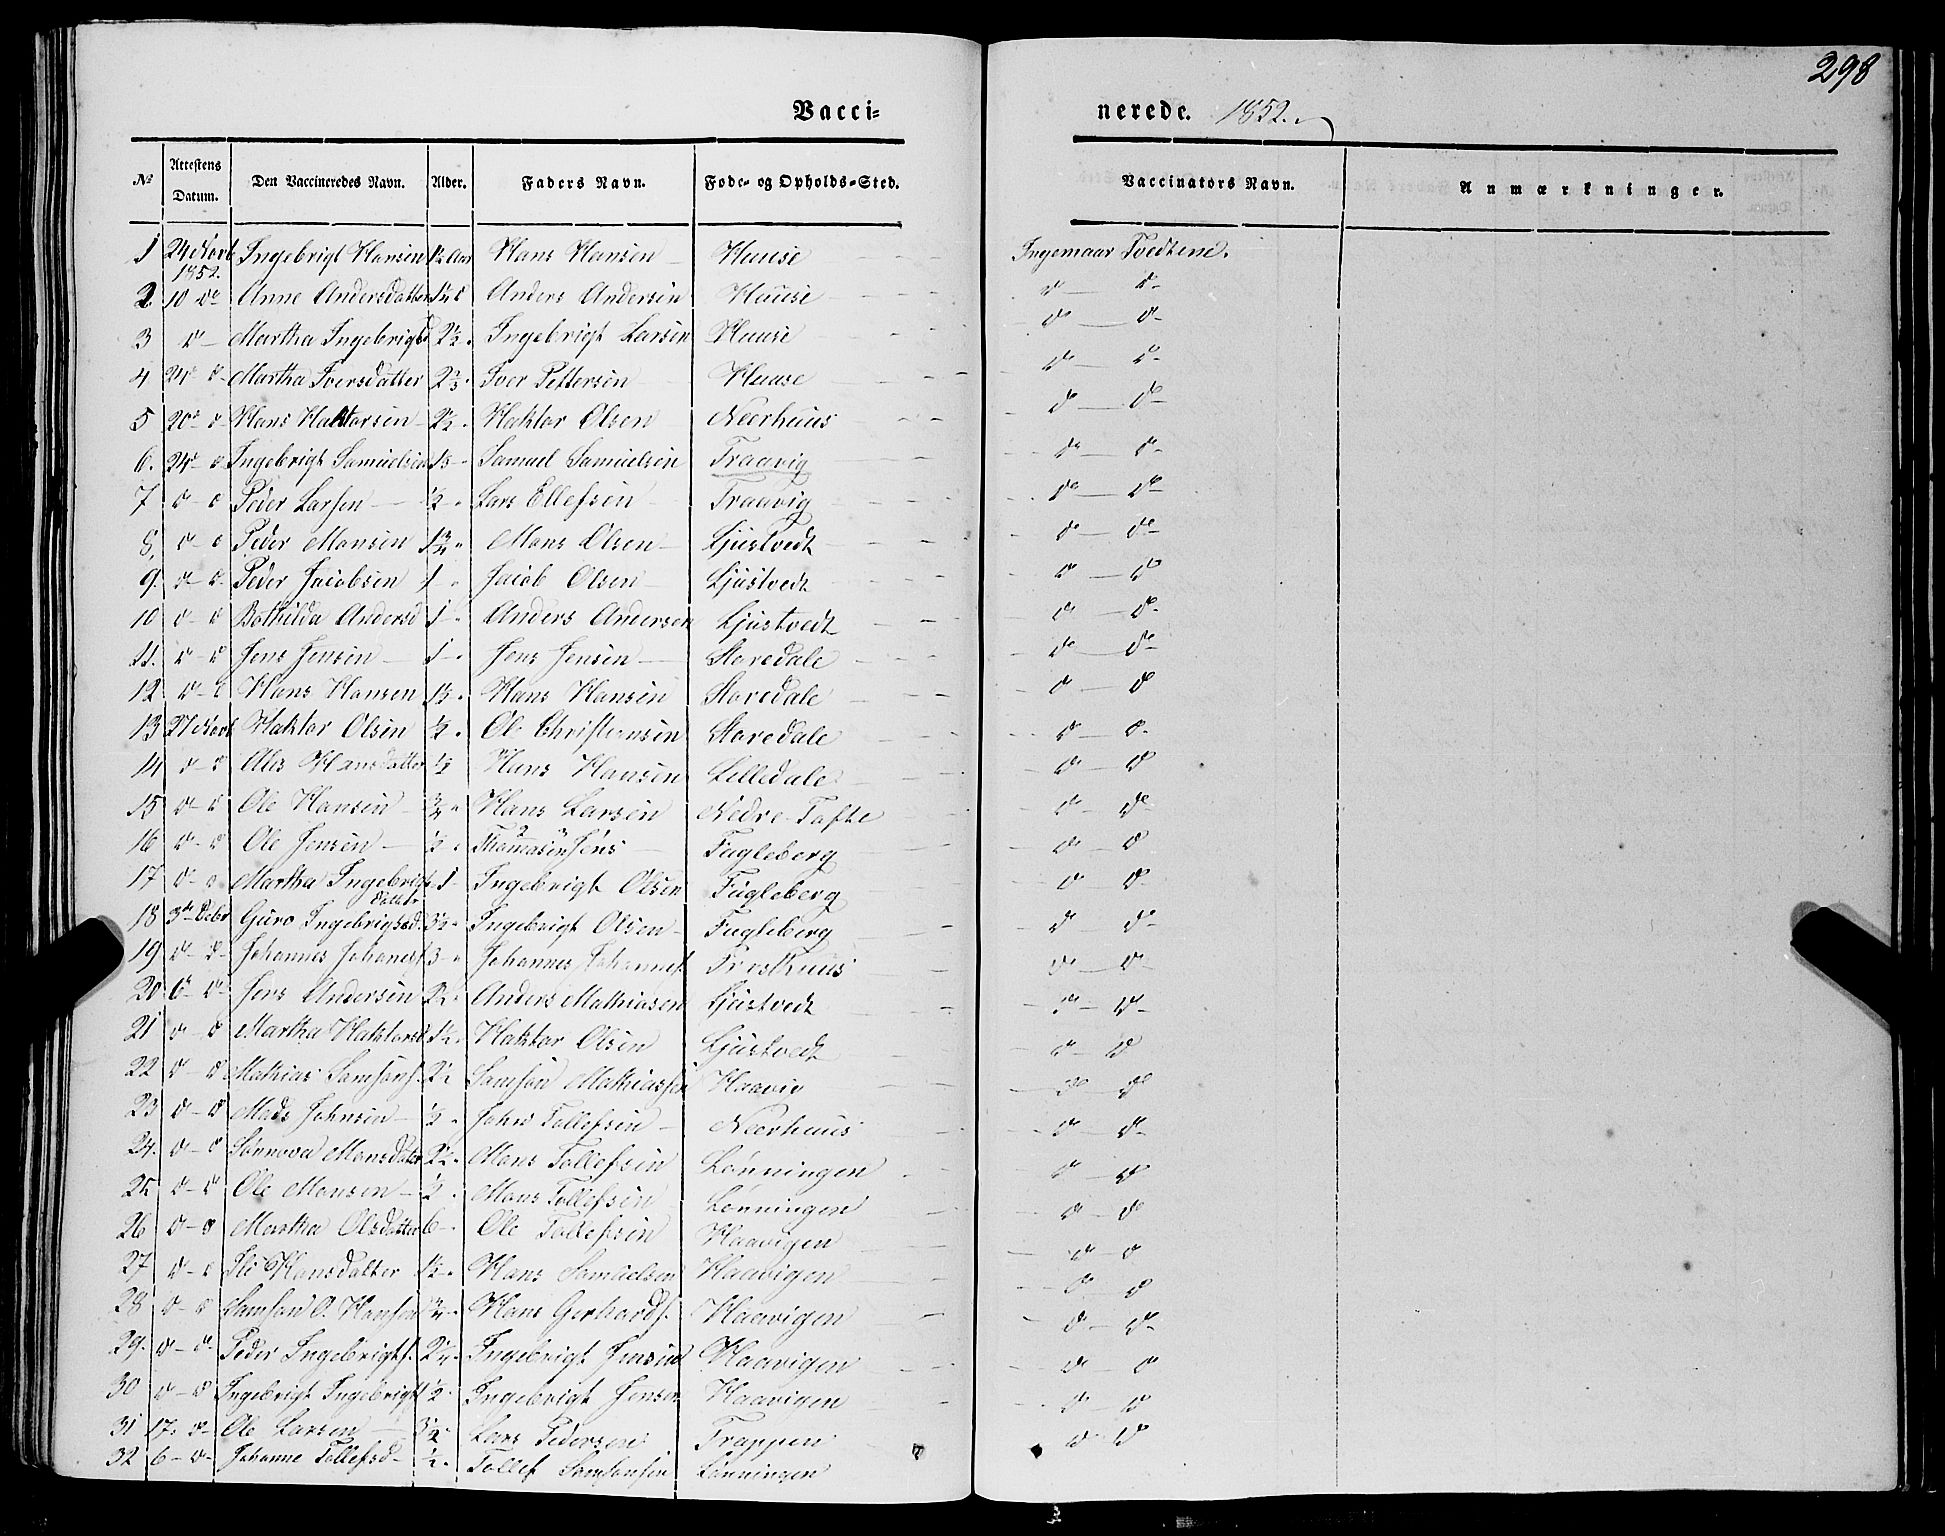 298
Vacci- nerede. 1852.
No Attestens Datum. Den Vaccineredes Navn. Alder. Faders Navn. Føde- og Opholds-Sted. Vaccinators Navn. Anmærkninger.
1 24 Novb 1852. Ingebrigt Hansen 1½ Aar Hans Hansen Hause Ingemaar Tvedtene.
2 10 do Anne Andersdatter Anders Andersen Hause do do
3 do Martha Ingebrigtsd 2½ Ingebrigt Larsen Hause do do
4 24 do Martha Iversdatter Iver Pettersen Hause do do
5 20 do Hans Haktorsen 2½ Haktor Olsen Neerhuus do do
6. 24 do Ingebrigt Samuelsen Samuel Samuelsen Traavig do do
7 do do Peder Larsen ½ Lars Ellefsen Traavig do do
8. do do Peder Monsen 1¾ Mons Olsen Ljustvedt do do
9. do do Peder Jacobsen 1 Jacob Olsen Ljustvedt do do
10 do do Bothilda Andersd 1 Anders Andersen Ljustvedt do do
11. do do Jens Jensen 1 Jens Jensen Storedale do do
12 do do Hans Hansen Hans Hansen Storedale do do
13 27 Novb Haktor Olsen ½ Ole Christensen Storedale do do
14 do do Hansdatter ½ Hans Hansen Lilledale do do
15 do do Ole Hansen ¾ Hans Larsen Nedre Tofte do do
16 do do Ole Jensen ½ Thomasen Jens Fugleberg do do
17 do do Martha Ingebrigts datter 1 Ingebrigt Olsen Fugleberg do do
18 3de Debr Guro Ingebrigtsd. 3½ Ingebrigt Olsen Fugleberg do do
19 do do Johannes Johanesf 3 Johannes Johannesf. do do
20 6 do Jens Andersen Anders Mathiasen Ljustvedt do do
21 do do Martha Haktorsd 1½ Haktor Olsen Ljustvedt do do
22 do do Mathias Samsons. Samson Mathiassen Haavig do do
23 do do Mads Johnsen ½ John Tollefsen Neerhuus do do
24. do do Sønnova Monsdatter 2½ Mons Tollefsen Lønningen do do
25 do do Ole Monsen ½ Mons Tollefsen Lønningen do do
26 do do Martha Olsdatter 6 Ole Tollefsen Haavigen do do
27 do do Hansdatter 1½ Hans Samuelsen Haavigen do do
28 do do Samson O. Hansen ¾ Hans Gerhards. Haavigen do do
29. do do Peder Ingebrigts. 2¼ Ingebrigt Jensen Haavigen do do
30 do do Ingebrigt Ingebrigts ½ Ingebrigt Jensen Haavigen do do
31 17. do Ole Larsen 3½ Lars Pedersen Trappen do do
32 6 do Johanne Tollefsd ½ Tollef Samsonsen Lønningen